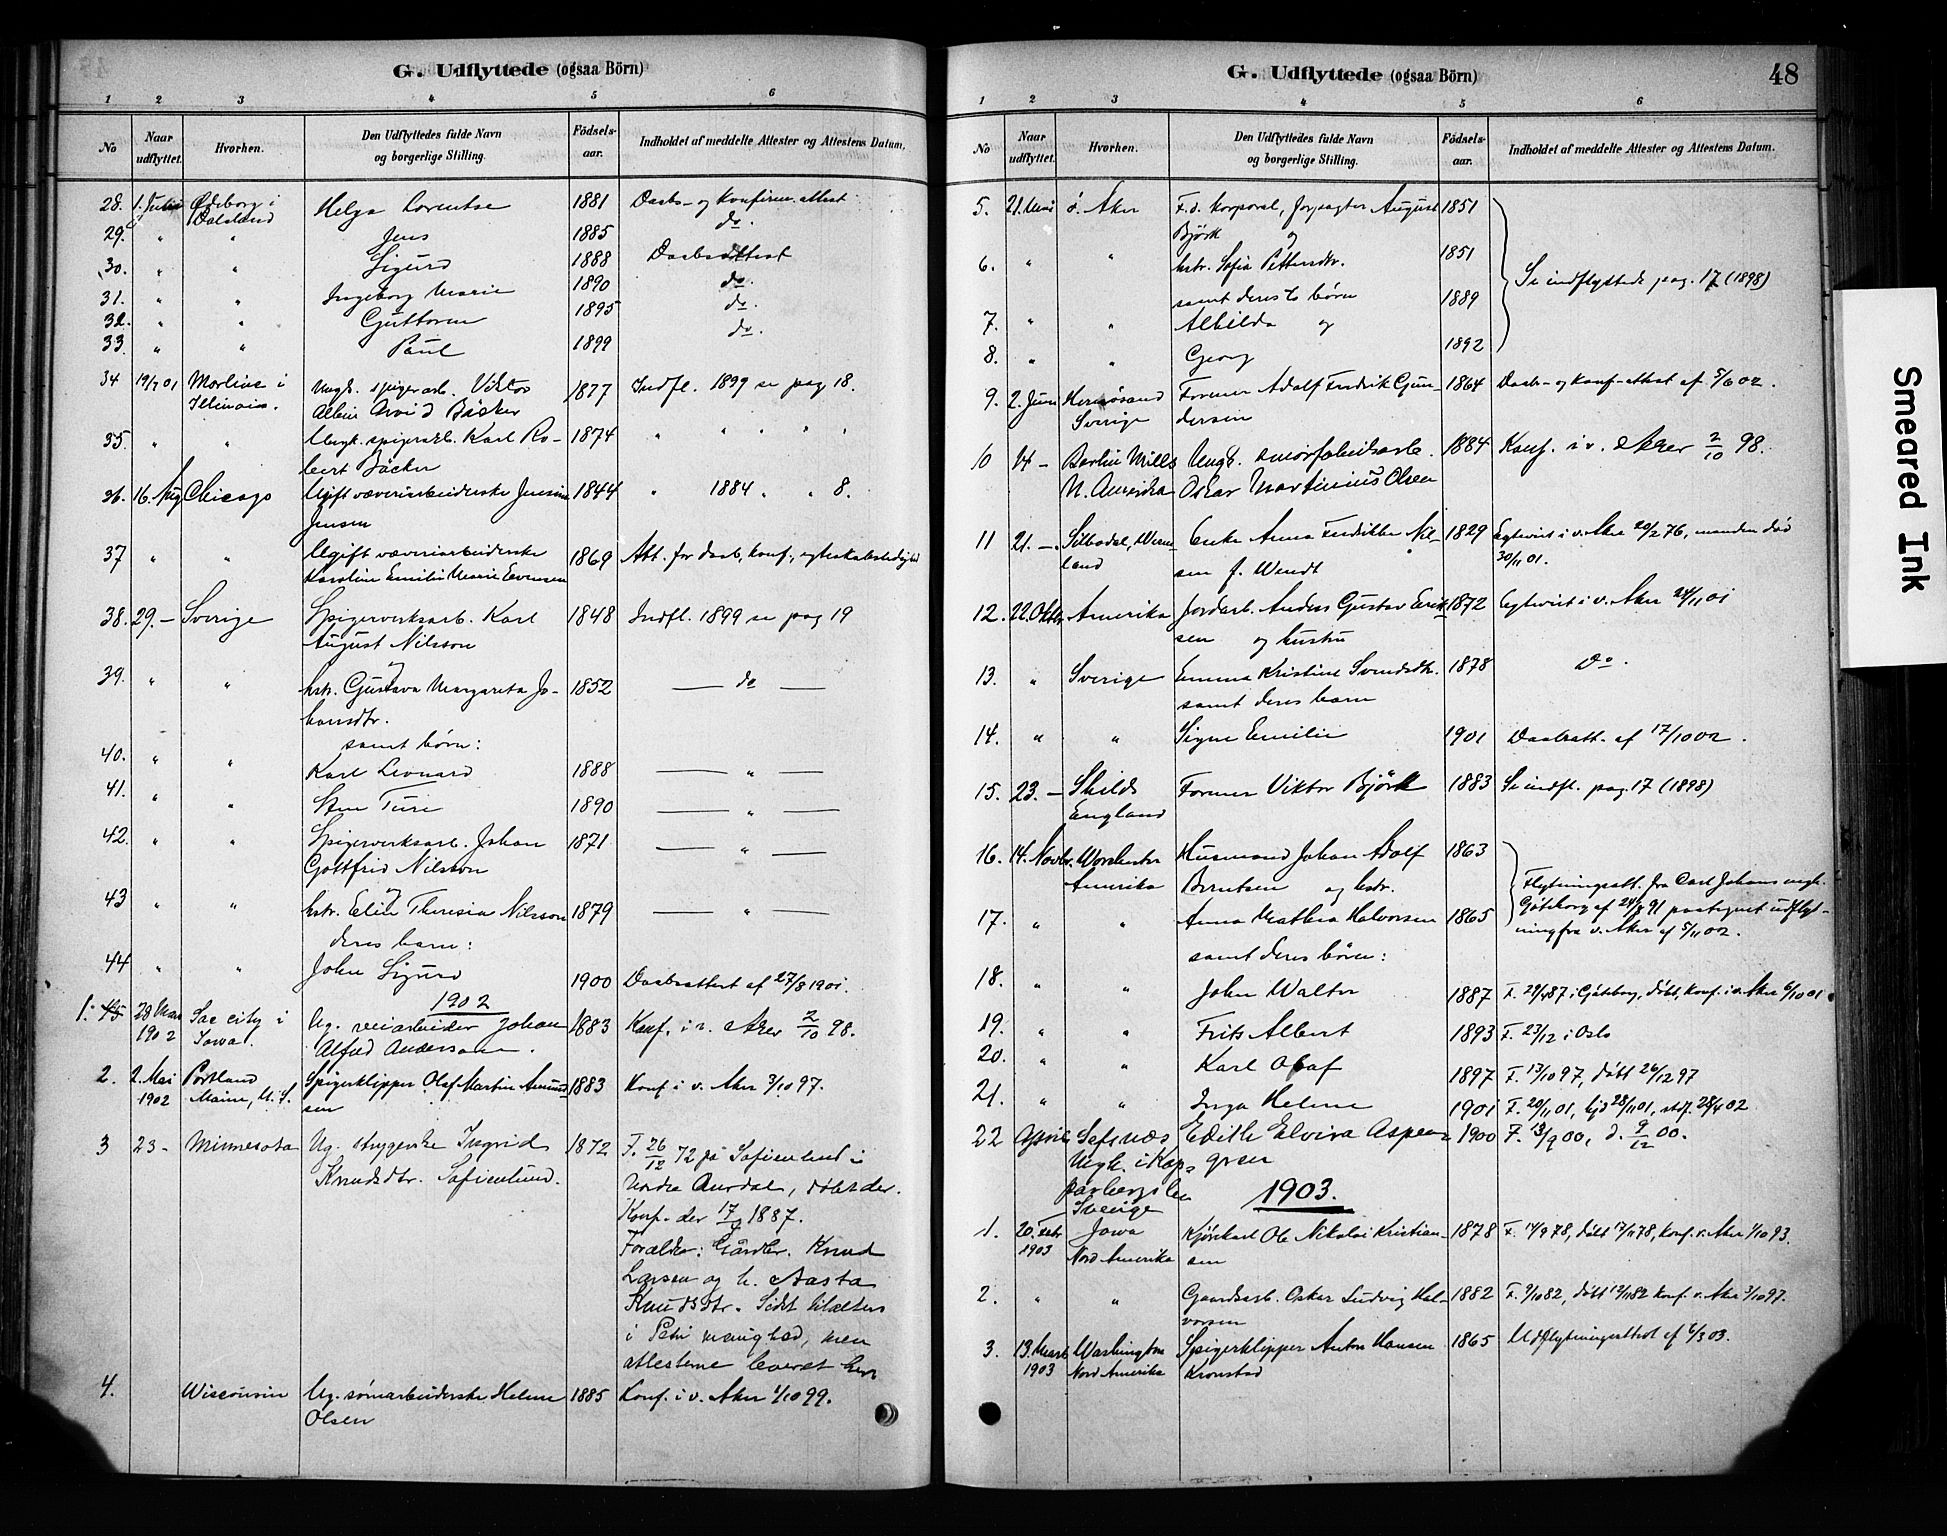 G. Udflyttede (ogsaa Börn)
1 2 3 4 5 6
No
Naar udflyttet.
Hvorhen.
Den Udflyttedes fulde Navn og borgerlige Stilling.
Födsels-aar.
Indholdet af meddelte Attester og Attestens Datum.
28. 1. Juli Ødeborg i Dalsland Helga Lorentse 1881 Daabs- og konfirm. attest
29. " " Jens 1885 do.
30. " " Sigurd 1888 Daabsattest
31. " " Ingeborg Marie 1890 do.
32. " " Guttorm 1895 do.
33. " " Paul 1899 do.
34 19/7 01 i Illinois. Ungk. spigerarb. Viktor 1877 Indfl. 1899 se pag 18.
Albin Arvid Bäcker
35. " " Ungk. spigerarb. Karl Ro- 1874 " " " "
bert Bäcker
36. 16. Aug Chicago Ugift væveriarbeiderske Jensine 1844 " 1884 " " 8.
Jensen
37 " " Ugift væveriarbeiderske 1869 Att. for daab, konf.,
Karoline Emilie Marie Evensen
38. 29. - Sverige Spigerverksarb. Karl 1848 Indfl. 1899 se pag 19
August Nilsson
39. " " hstr. Gustava Margareta Jo- 1852 — do —
hansdtr.
samt børn:
40. " " Karl Leonard 1888 — " —
41. " " Sten Ture 1890 — " —
42. " " Spigerverksarb. Johan 1871 — " —
Gottfrid Nilsson
43 " " hstr. Elin Theresia Nilsson 1879 — " —
deres barn:
44 " " John Sigurd 1900 Daabsattest af 27/8 1901
1902
1. 45 28 Mars 1902 Sac city i Iowa. Ug. veiarbeider Johan 1883 Konf. i v. Aker 2/10 98.
Alfred Andersson.
2. 2. Mai 1902 Portland Maine, U. S. Spigerklipper Olaf Martin Amund- 1883 Konf i v. Aker 3/10 97.
sen
3 23 - Minnesota Ug. strygerske Ingrid 1872 F. 26/12 72 på Sofienlund i
Knudsdtr. Sofienlund. Nordre Aurdal, døbt der.
Konf. der 17/7 1887.
Forældre: Gårdbr. Knud
Larsen og h. Aasta
Knudsdtr. Sidst tilholdt
i Petri menighed, men
attesterne leveret her
4. Wisconsin Ug. sømarbeiderske Helene 1885 Konf. i v. Aker 1/10 99.
Olsen
G. Udflyttede (ogsaa Börn) 48
1 2 3 4 5 6
No
Naar udflyttet.
Hvorhen.
Den Udflyttedes fulde Navn og borgerlige Stilling.
Födsels-aar.
Indholdet af meddelte Attester og Attestens Datum.
5. 21. Mai ö. Aker F. d. korporal, forpagter August 1851
Björk og
6. " " hstr. Sofia Pettersdtr. 1851
samt deres børn Se indflyttede pag. 17 (1898)
7. " " Alhilda og 1889
8. " " Georg 1892
9. 2. Juni Hernösand Sverige Former Adolf Fredrik Gun- 1864 Daabs- og konf-attest af 5/6 02.
dersen
10 14 - Berlin Mills N. Amerika Ungk. smørfabriksarb. 1884 Konf. i v. Aker 2/10 98.
Oskar Martinius Olsen
11 21. - Silbodal, Werm- land Enke Anna Fredrikke Nil- 1829 Egteviet i v. Aker 20/2 76, manden død
sen f. Wendt 30/11 01.
12. 22. Oktbr. Amerika Jordarb. Anders Gustav Erik- 1872 Egteviet i v. Aker 24/11 01
sen og hustru
13. " Sverige Emma Kristine Svendsdtr. 1878 do.
samt deres barn
14. " " Signe Emilie 1901 Daabsatt. af 17/10 02.
15. 23. - Shilds England Former Viktor Björk 1883 Se indfl. pag. 17 (1898)
16. 14. Novbr. Worchester Amerika Husmand Johan Adolf 1863
Berntsen og hstr. Flytningsatt. fra Carl Johans mgh.
17. " " Anna Mathea Halvorsen 1865 Göteborg af 24/8 91 paategnet udflyt-
ning fra v. Aker af 5/11 02.
samt deres børn:
18. " " John Walter 1887 F. 29/4 87 i Göteborg, døbt, konf. i v. Aker 6/10 01
19. " " Frits Albert 1893 F. 23/12 i Oslo
20. " " Karl Olaf 1897 F. 13/10 97, døbt 26/12 97
21. " " Inga Helene 1901 F. 20/11 01, hjd 28/11 01, stf. 28/4 02
22 April Sefsnäs Mgh. i Kop- parbergs len Sverige Edith Elvira Aspen- 1900 F. 13/9 00, d. 9/12 00.
gren
1903.
1. 20. Febr 1903 Jowa Nord Amerika Kjørekarl Ole Nikolai Kristian- 1878 F. 14/9 78, døbt 17/11 78, konf. v. Aker 1/10 93.
sen
2. " " Gaardsarb. Oskar Ludvig Hal- 1882 F. 9/10 82, døbt 19/11 82 konf. v. Aker 3/10 97.
vorsen
3. 13. Marts 1903 Washington Nord Amerika Spigerklipper Anton Hansen 1865 Udflytningsattest af 6/3 03.
Kronstad
Smeared Ink